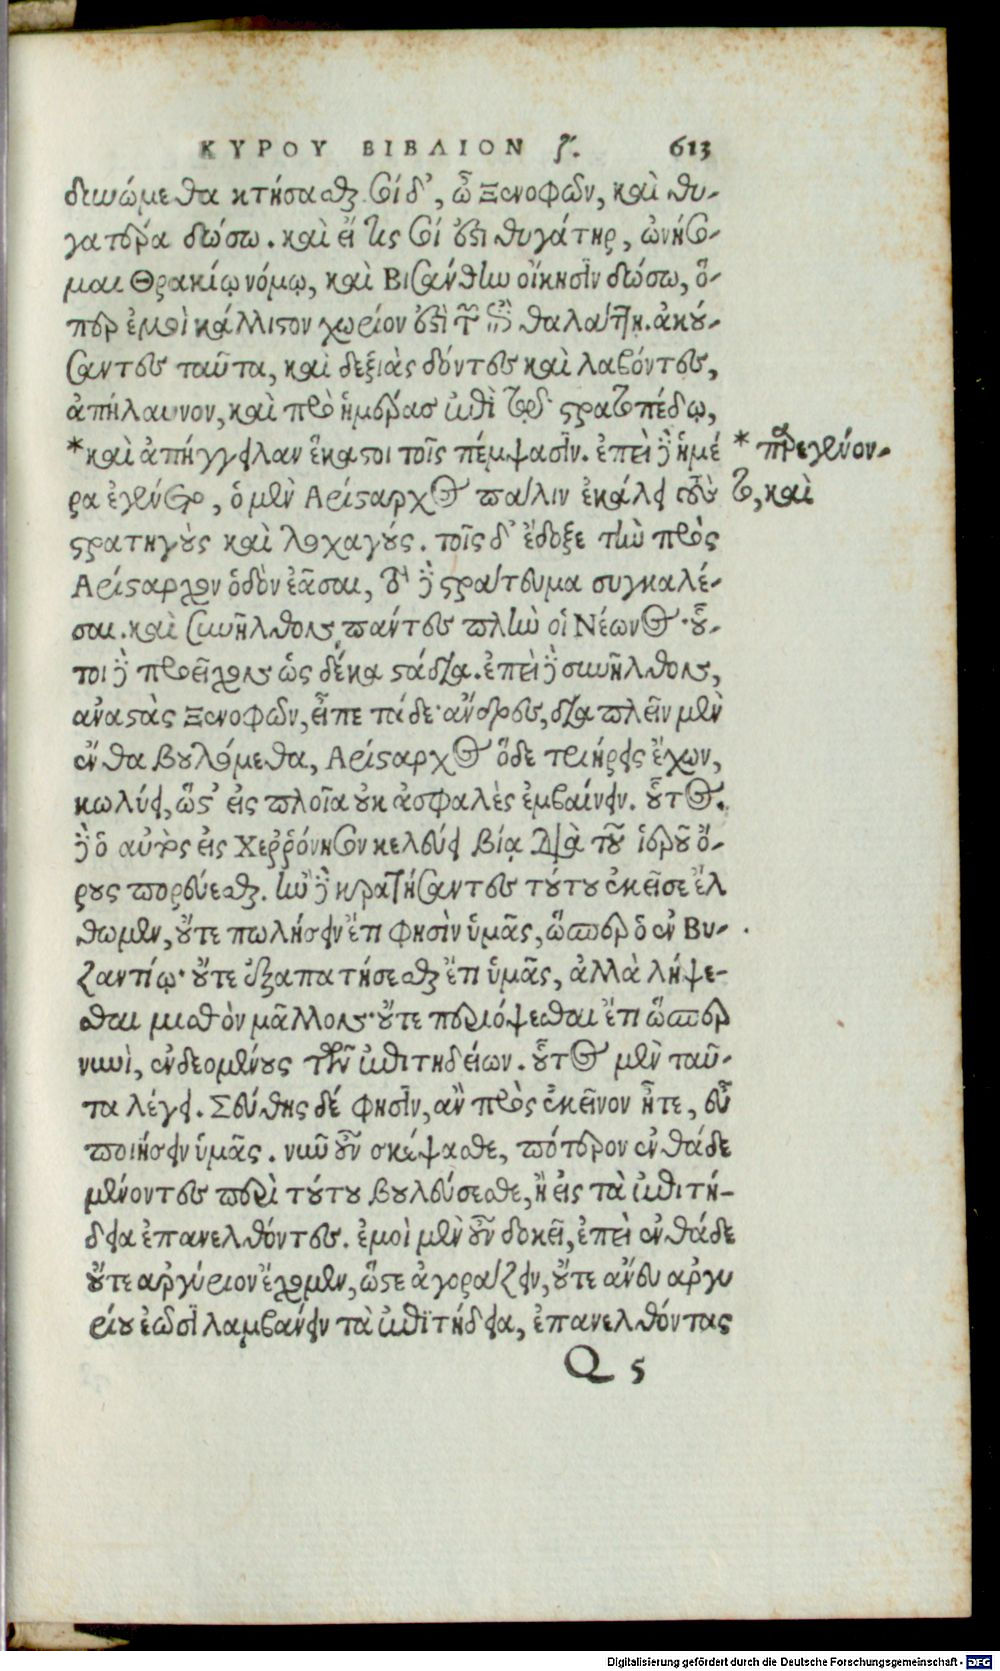 ΚΥΡΟΥ ΒΙΒΛΙΟΝ ζ. 613
δυνώμεθα κτήσασθαι. σοὶ δ', ὦ Ξενοφῶν, καὶ θυ-
γατέρα δώσω. καὶ εἴ τις σοί ἐστι θυγάτηρ, ὠνήσο-
μαι Θρακίῳ νόμῳ, καὶ Βισάνθην οἴκησιν δώσω, ὅ-
περ ἐμοὶ κάλλιστον χωρίον ἐστὶ τῶν ἐπὶ θαλάττῃ. ἀκού-
σαντες ταῦτα, καὶ δεξιὰς δόντες καὶ λαβόντες,
ἀπήλαυνον, καὶ πρὸ ἡμέρας ἐπὶ τῷ στρατοπέδῳ,
*καὶ ἀπήγγειλαν ἕκαστοι τοῖς πέμψασιν. ἐπεὶ δὲ ἡμέ
* παρεγένον-
ρα ἐγένετο, ὁ μὲν Αρίσταρχος πάλιν ἐκάλει τοὺς
το, καὶ
στρατηγοὺς καὶ λοχαγούς. τοῖς δ' ἔδοξε τὴν πρὸς
Αρίσταρχον ὁδὸν ἐᾶσαι, τὸ δὲ στράτευμα συγκαλέ-
σαι. καὶ συνῆλθον πάντες πλὴν οἱ Νέωνος. οὗ-
τοι δὲ προεῖχον ὡς δέκα στάδια. ἐπεὶ δὲ συνῆλθον,
ἀναστὰς Ξενοφῶν, εἶπε τάδε. ἄνδρες, διαπλεῖν μὲν
ἔνθα βουλόμεθα, Αρίσταρχος ὅδε τριήρεις ἔχων,
κωλύει, ὥστ' εἰς πλοῖα οὐκ ἀσφαλὲς ἐμβαίνειν. οὗτος.
δὲ ὁ αὐτὸς εἰς Χεῤῥόνησον κελεύει βίᾳ διὰ τοῦ ἱεροῦ ὄ-
ρους πορεύεσθαι. ἢν δὲ κρατήσαντες τούτου ἐκεῖσε ἔλ
θωμεν, οὔτε πωλήσειν ἔτι φησὶν ὑμᾶς, ὥσπερ ὁ ἐν Βυ-
ζαντίῳ. οὔτε ἐξαπατήσεσθαι ἔτι ὑμᾶς, ἀλλὰ λήψε-
σθαι μισθὸν μᾶλλον. οὔτε περιόψεσθαι ἔτι ὥσπερ
νυνὶ, ἐνδεομένους τῶν ἐπιτηδείων. οὗτος μὲν ταῦ-
τα λέγει. Σεύθης δέ φησιν, ἂν πρὸς ἐκεῖνον ἦτε, εὖ
ποιήσειν ὑμᾶς. νῦν οὖν σκέψασθε, πότερον ἐνθάδε
μένοντες περὶ τούτου βουλεύσεσθε, ἢ εἰς τὰ ἐπιτή-
δεια ἐπανελθόντες. ἐμοὶ μὲν οὖν δοκεῖ, ἐπεὶ ἐνθάδε
οὔτε αργύριον ἔχομεν, ὥστε ἀγοράζειν, οὔτε ἄνευ αργυ
ρίου ἐῶσι λαμβάνειν τὰ ἐπιτήδεια, ἐπανελθόντας
Q 5
Digitalisierung gefördert durch die Deutsche Forschungsgemeinschaft - DFG